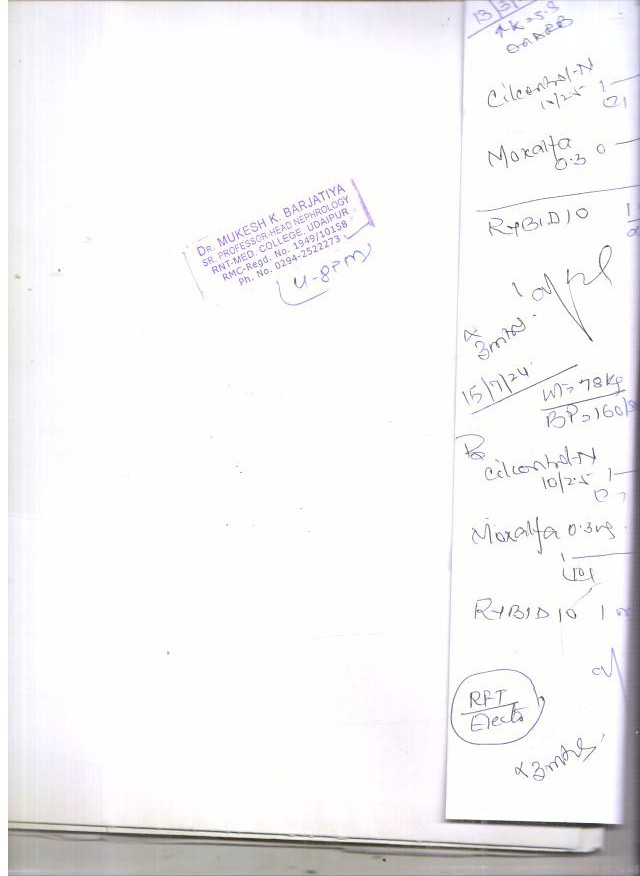 DR. MUKESH K. BARJATIYA
SR. PROFESSOR-HEAD NEPHROLOGY
RNT-MED. COLLEGE, UDAIPUR
RMC-Regd. No. 1949/10158
Ph. No. 0294-2522273
4-8PM
13/3/
↑K=5.3
on ARB
Cilcontrol-N 1
10/2.5
Moxalfa
0.3 0
RYBID 10 1
x 3mths
15/7/24
Wt=78kg
BP=160/
Rx
Cilcontrol-N
10/2.5 1
Moxalfa 0.3mg
1
RYBID 10 1
RFT
Electo
x 3mths